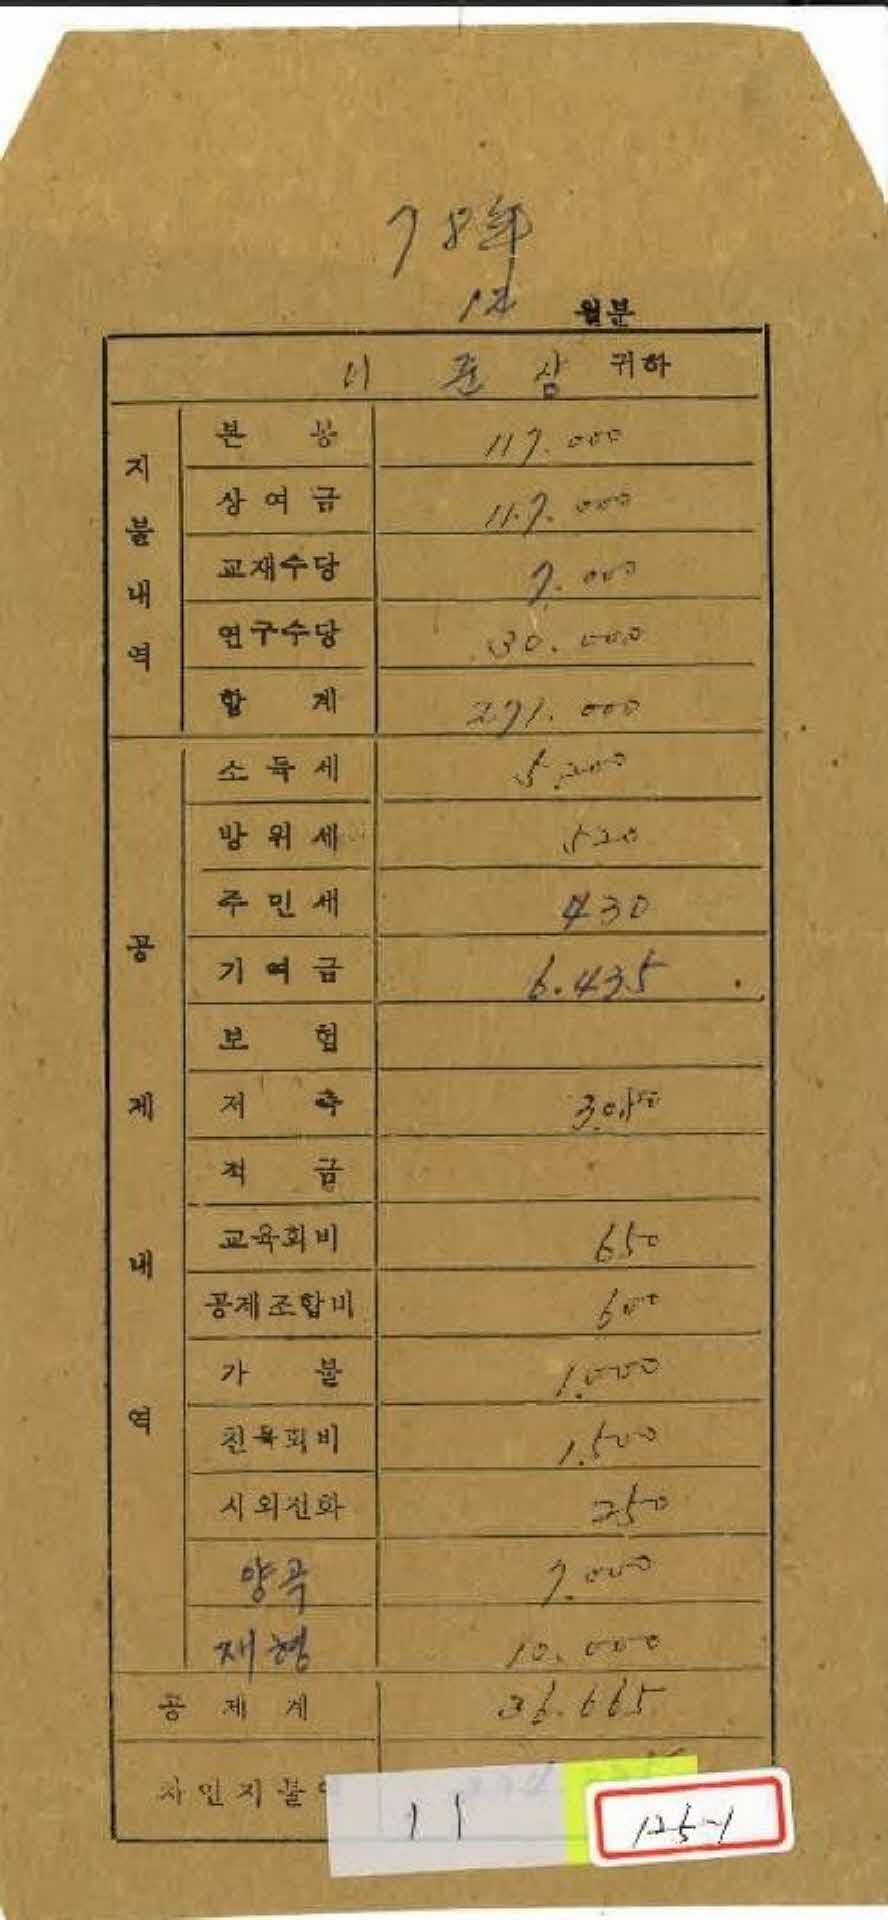 78年
12 월분
이 준 삼 귀하
지불내역
본 봉 117.000
상여금 117.000
교재수당 7.000
연구수당 30.000
합 계 271.000
공제내역
소득세 5.200
방위세 520
주민세 430
기여금 6.435
보 험
저 축
적 금
교육회비 650
공제조합비 600
가 불 1.000
친목회비 1.500
시외전화 250
양곡 7.000
재형 10.000
공제계 36.665
차인지불
11
125-1